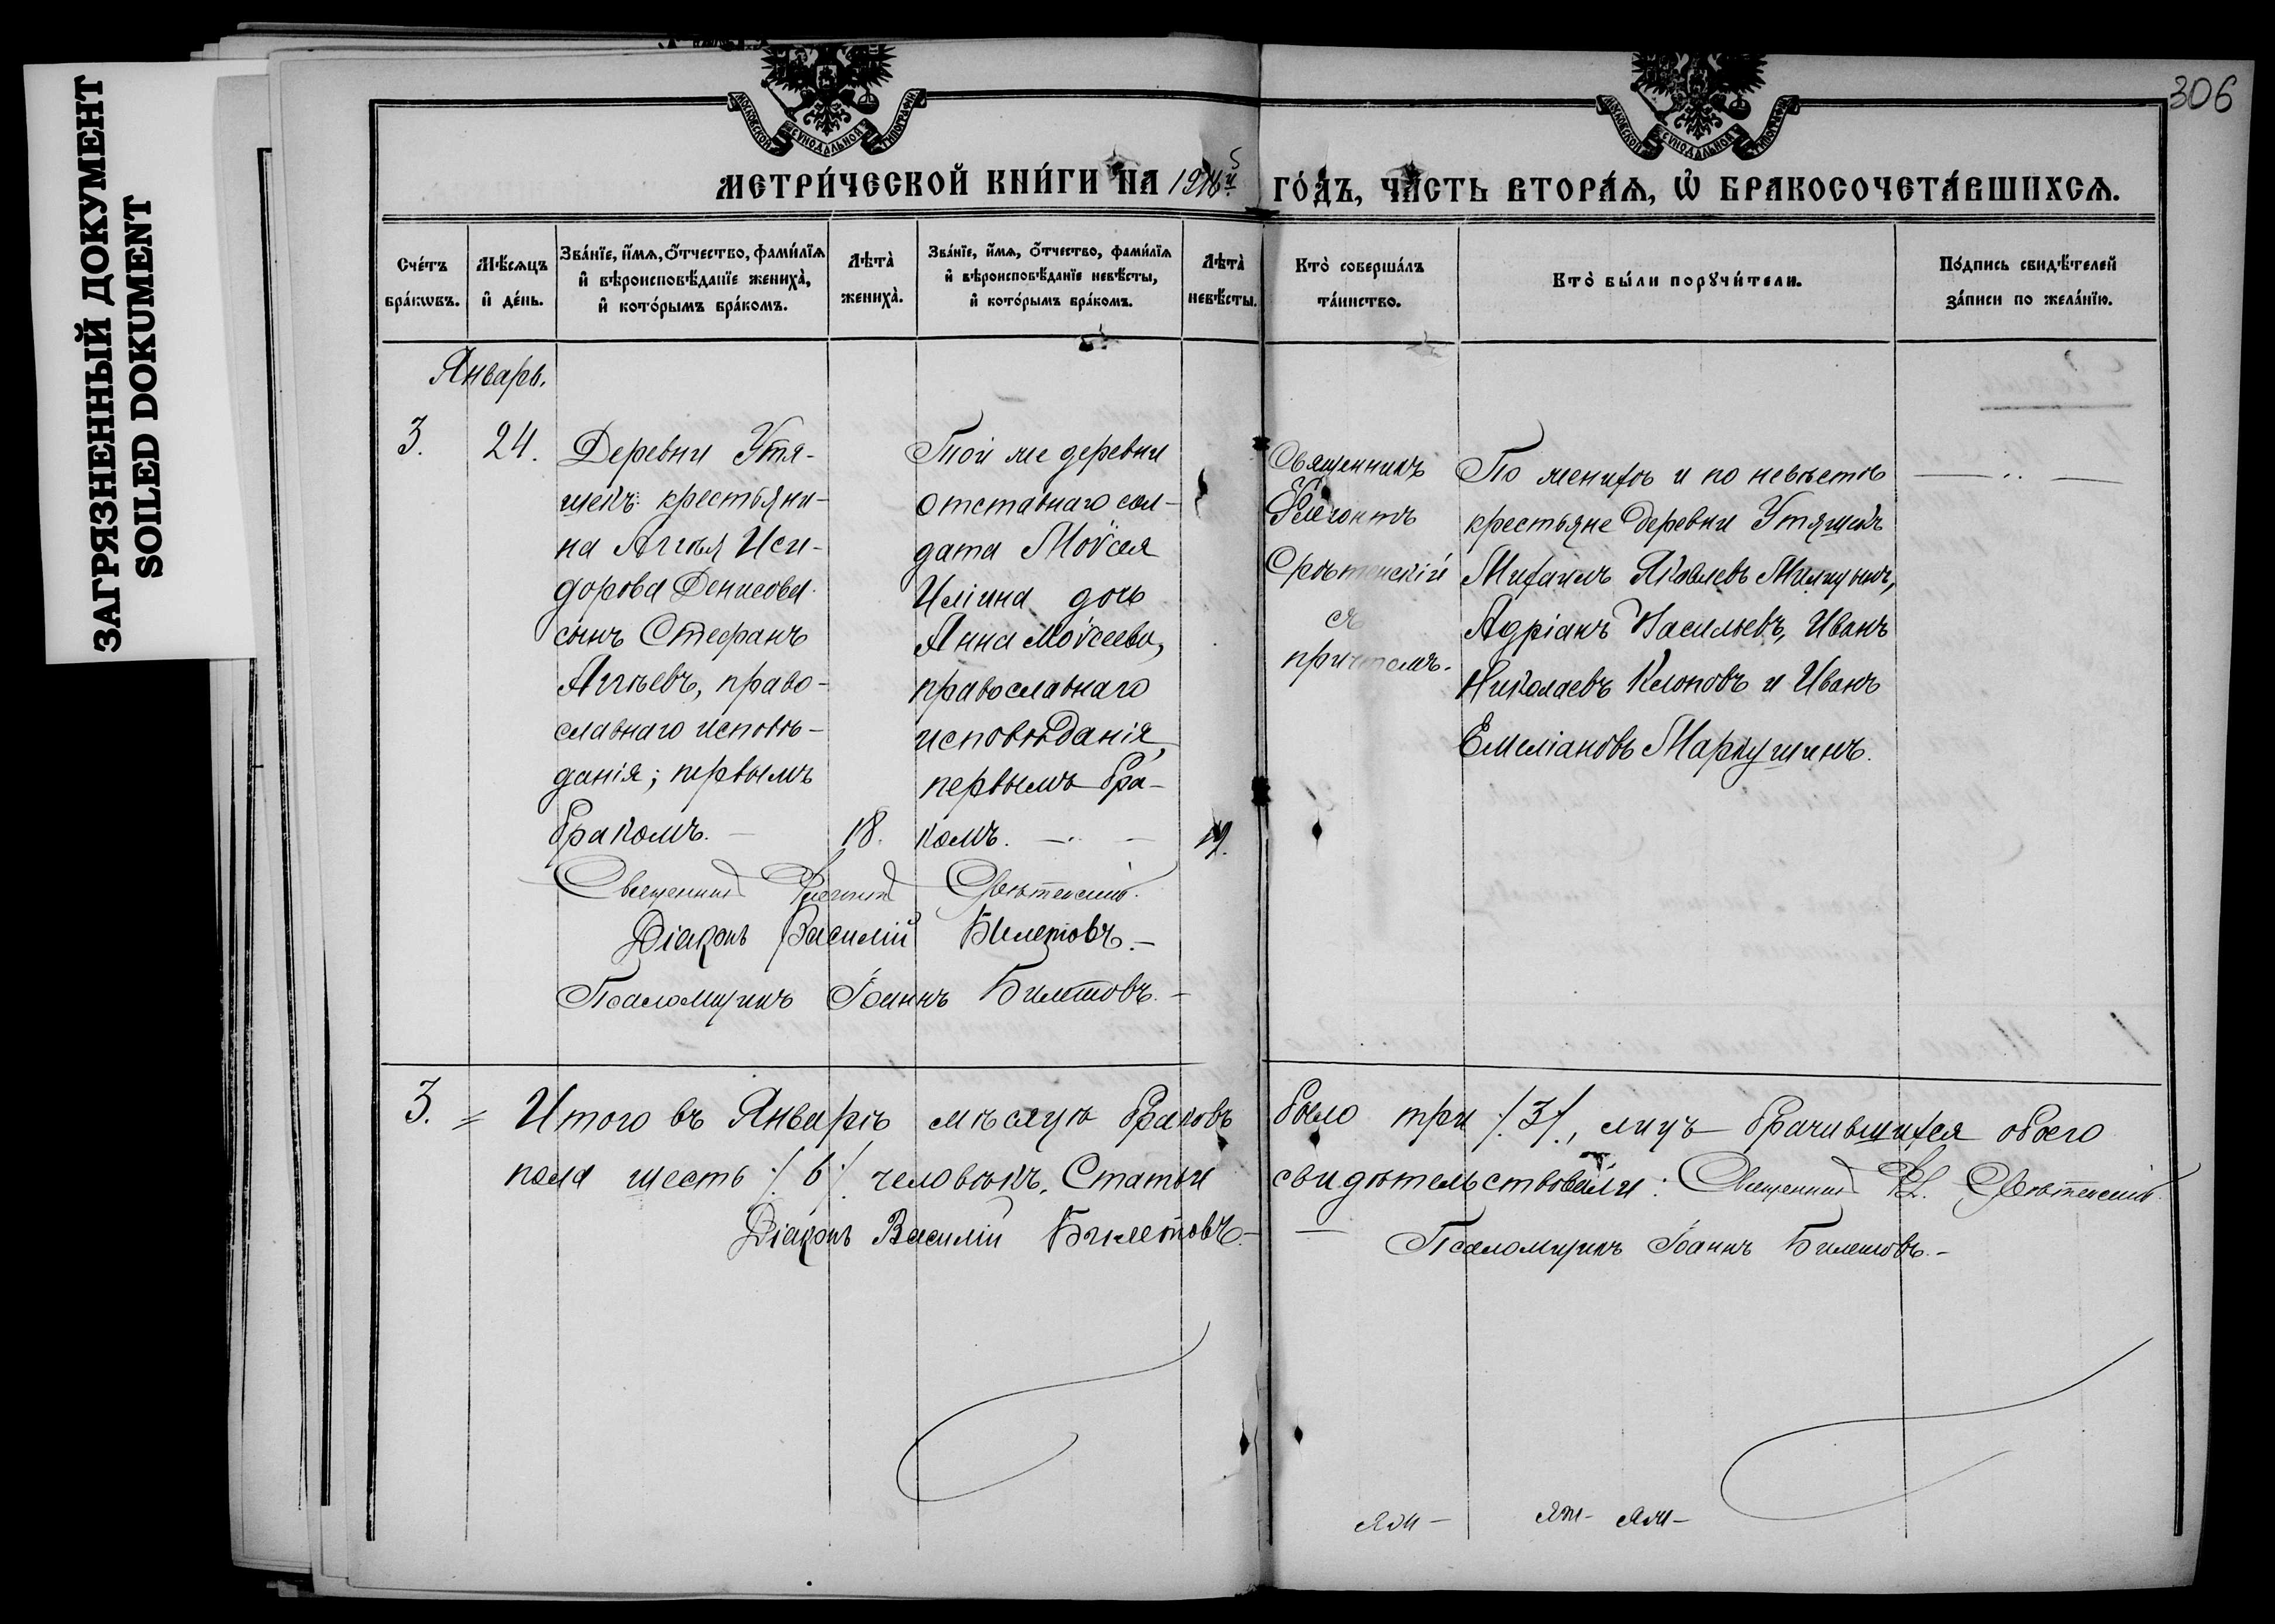 ЗАГРЯЗНЕННЫЙ ДОКУМЕНТ
SOILED DOKUMENT
306
МОСКОВСКОЙ СѴНОДАЛЬНОЙ ТИПОГРАФІИ
МОСКОВСКОЙ СѴНОДАЛЬНОЙ ТИПОГРАФІИ
МЕТРИ́ЧЕСКОЙ КНИ́ГИ НА ГО́ДЪ, ЧА́СТЬ ВТОРА́Ѧ, Ѡ҆ БРАКОСОЧЕТА́ВШИХСѦ.
Сче́тъ бра́кѡвъ.
Мѣ́сяцъ и҆ де́нь.
Зва́нїе, и҆́мѧ, ѻ҆́тчество, фами́лїѧ
и҆ вѣроисповѣ́данїе жениха̀,
и҆ кото́рымъ бра́комъ.
Лѣта̀ жениха̀.
Зва́нїе, и҆́мѧ, ѻ҆́тчество, фами́лїѧ
и҆ вѣроисповѣ́данїе невѣ́сты,
и҆ кото́рымъ бра́комъ.
Лѣта̀ невѣ́сты.
Кто̀ соверша́лъ та́инство.
Кто̀ бы́ли порꙋчи́тели.
По́дпись свидѣ́телей за́писи по жела́нїю.
Январь.
3.
24.
Деревни Утя-
шекъ крестьяни-
на Аггѣя Иси-
дорова Денисова
сынъ Стефанъ
Аггѣевъ, право-
славнаго исповѣ-
данія; первымъ
бракомъ. —
18.
Той же деревни
отставнаго сол-
дата Моѵсея
Иліина дочь
Анна Моѵсеева,
православнаго
исповѣданія,
первымъ бра-
комъ. —
19.
Священникъ
Флегонтъ
Срѣтенскій
съ
причтомъ.
По женихѣ и по невѣстѣ
крестьяне деревни Утяшекъ
Михаилъ Яковлевъ
Адріанъ Васильевъ, Иванъ
Николаевъ Клоповъ и Иванъ
Емеліановъ Маркушинъ.
Священникъ Флегонтъ Срѣтенскій.
Діаконъ Василій Билетовъ. —
Псаломщикъ Іоаннъ Билетовъ. —
3. = Итого въ Январѣ мѣсяцѣ браковъ было три /.3/., лицъ брачившихся обоего
пола шесть /.6/. человѣкъ. Статьи свидѣтельствовали: Священникъ Фл. Срѣтенскій.
Діаконъ Василій Билетовъ. — Псаломщикъ Іоаннъ Билетовъ. —